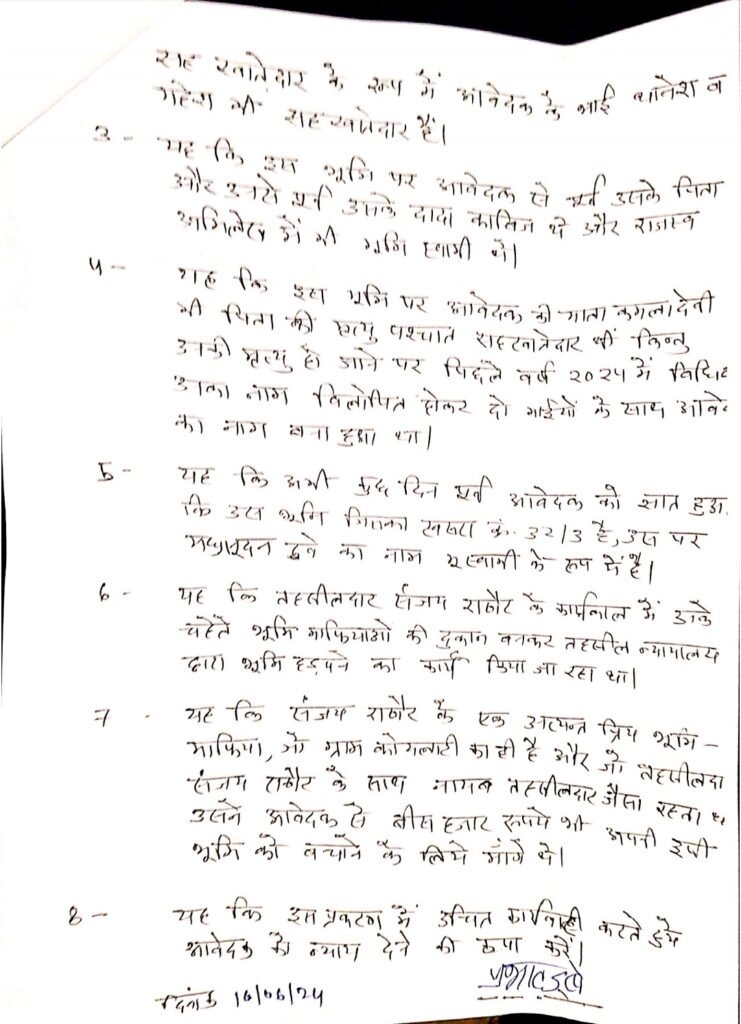 सह खातेदार के रूप में आवेदक के भाई थानेश व
महेश भी सहखातेदार हैं।
3 - यह कि इस भूमि पर आवेदक से पूर्व उसके पिता
और उनसे पूर्व उसके दादा काबिज थे और राजस्व
अभिलेख में भी भूमि स्वामी थे।
4 - यह कि इस भूमि पर आवेदक की माता कमलादेवी
भी पिता की मृत्यु पश्चात सहखातेदार थीं किन्तु
उनकी मृत्यु हो जाने पर पिछले वर्ष 2024 में
उनका नाम विलोपित होकर दो भाईयों के साथ आवे
का नाम बना हुआ था।
5 - यह कि अभी कुछ दिन पूर्व आवेदक को ज्ञात हुआ
कि उस भूमि जिसका खसरा क्रं. 32/3 है, उस पर
मधुसूदन दुबे का नाम भूस्वामी के रूप में है।
6 - यह कि तहसीलदार संजय राठौर के कार्यकाल में उनके
चहेते भूमि माफियाओं की दुकान बनकर तहसील न्यायालय
द्वारा भूमि हड़पने का कार्य किया जा रहा था।
7 - यह कि संजय राठौर के एक अत्यन्त प्रिय भूमि-
माफिया, जो ग्राम का ही है और जो तहसीलदा
संजय राठौर के साथ नायब तहसीलदार जैसा रहता था
उसने आवेदक से बीस हजार रूपये भी अपनी इसी
भूमि को बचाने के लिये मांगे थे।
8 - यह कि इस प्रकरण में उचित कार्यवाही करते हुये
आवेदक को न्याय देने की कृपा करें।
दिनांक 16/06/24